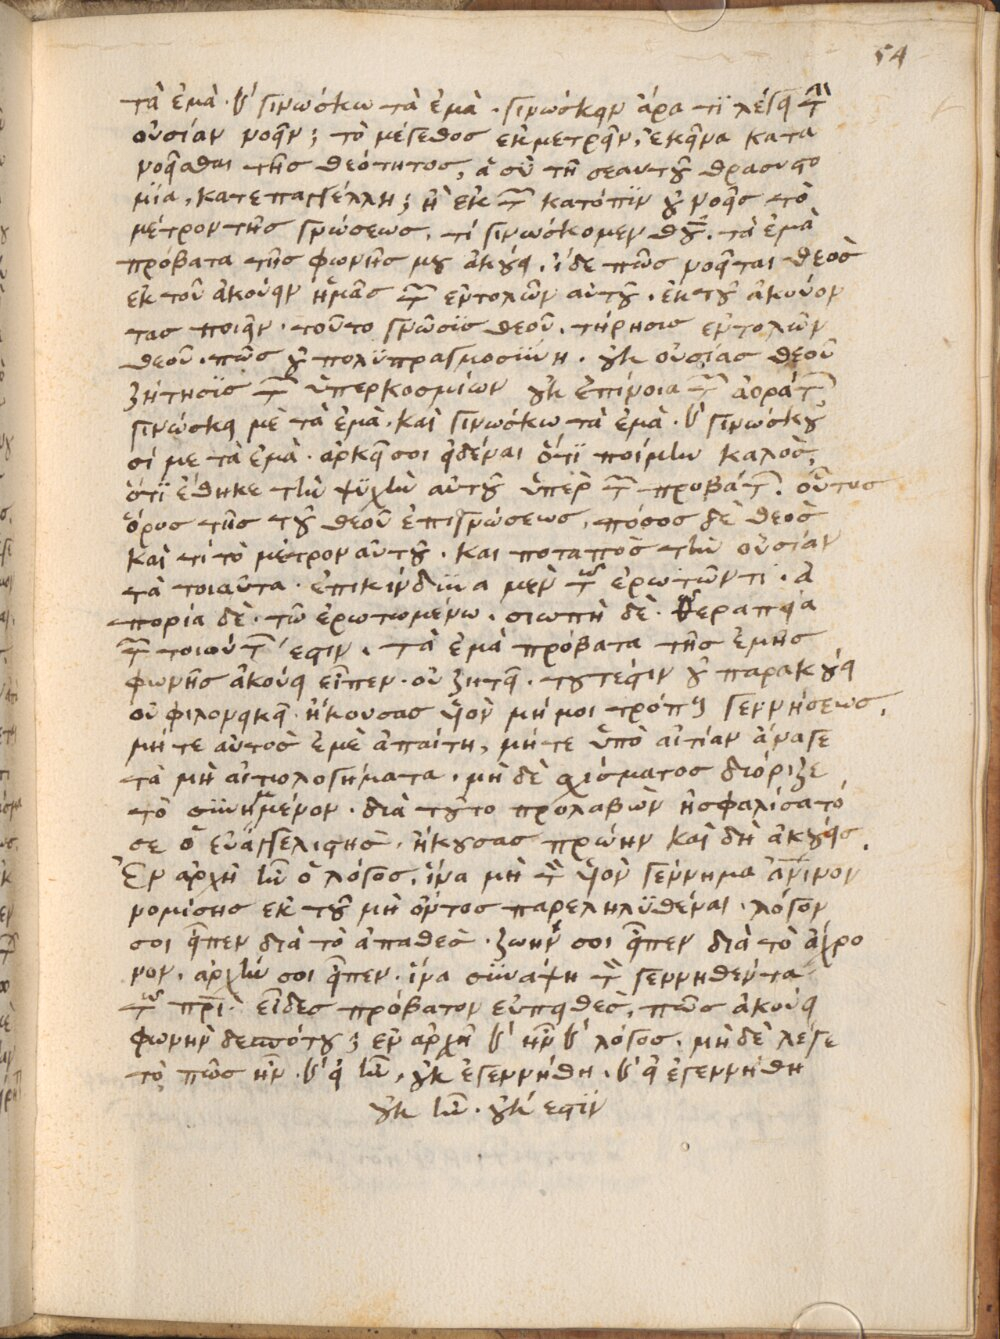 54
τὰ ἐμὰ · καὶ γινώσκω τὰ ἐμὰ · γινώσκειν ἆρα τί λέγει τὴν
οὐσίαν νοεῖν ; τὸ μέγεθος ἐκμετρεῖν, ἐκεῖνα κατα
νοεῖσθαι τῆς θεότητος, ἃ σὺ τῆ σεαυτοῦ θρασυστο
μία, κατεπαγγέλλη ; ἢ ἐκ τῶν κατόπιν οὐ νοεῖς τὸ
μέτρον τῆς γνώσεως. τί γινώσκομεν θῡ. τὰ ἐμὰ
πρόβατα τῆς φωνῆς μου ἀκούει. ἴδε πῶς νοεῖται θεὸς
ἐκ τοῦ ἀκούειν ἡμᾶς τῶν ἐντολῶν αὐτοῦ · ἐκ τοῦ ἀκούον
τας ποιεῖν · τοῦτο γνῶσϊς θεοῦ. τήρησις ἐντολῶν
θεοῦ · πῶς οὐ πολϋπραγμοσϋνη · οὐκ οὐσίας θεοῦ
ζήτησϊς τῶν ὑπερκοσμίων οὐκ ἐπίνοια τῶν ἀοράτων,
γινώσκει μὲ τὰ ἐμὰ · καὶ γινώσκω τὰ ἐμὰ · καὶ γινώσκου
σί με τὰ ἐμὰ · ἀρκεῖ σοι εἰδέναι ὅτϊ ποίμην καλὸς,
ὅτϊ ἔθηκε τὴν ψϋχὴν αὐτοῦ ὑπὲρ τῶν προβάτων. οὗτος
ὅρος τῆς τοῦ θεοῦ ἐπιγνώσεως, πόσος δὲ θεὸς
καὶ τί τὸ μέτρον αὐτοῦ · καὶ ποταπὸς τὴν οὐσίαν
τὰ τοιαῦτα · ἐπικίνδϋνα μὲν τῶ ἐρωτῶντι · ἀ
πορία δὲ · τῶ ἐρωτωμένω · σιωπὴ δὲ · θεραπεία
τῶν τοιούτων ἐστιν. τὰ ἐμὰ πρόβατα τῆς ἐμῆς
φωνῆς ἀκούει εἶπεν · οὐ ζητεῖ · τουτέστιν οὐ παρακούει
οὐ φιλονεικεῖ · ἤκουσας υἱὸν μή μοι τρόπους γεννήσεως.
μή τε αὐτὸς ἐμὲ ἀπαίτη, μή τε ὑπὸ αἰτίαν ἄναγε
τὰ μὴ αἰτιολογήματα · μὴ δὲ χίσματος διόριζε
τὸ σϋνημμένον · διὰ τοῦτο προλαβὼν ἠσφαλίσατό
σε ὁ εὐαγγελιστής · ἤκουσας πρώην καὶ δὴ ἀκούεις.
Ἐν ἀρχῇ ἦν ὁ λόγος, ἵνα μὴ τὸν υἱὸν γέννημα ἀνινον
νομίσης ἐκ τοῦ μὴ ὄντος παρεληλϋθέναι · λόγον
σοι εἶπεν διὰ τὸ ἀπαθὲς · ζωήν σοι εἶπεν διὰ τὸ ἄχρο
νον · ἀρχήν σοι εἶπεν · ἵνα σϋνάψη τὸν γεννηθέντα
τῶ πρῑ. εἶδες πρόβατον εὐπειθὲς, πῶς ἀκούει
φωνὴν δεσπότου ; ἐν ἀρχῆ καὶ ἦν καὶ λόγος · μὴ δὲ λέγε
τὸ πῶς ἦν · καὶ εἰ ἦν, οὐκ ἐγεννήθη · καὶ εἰ ἐγεννήθη
οὐκ ἦν · οὐκ ἐστϊν